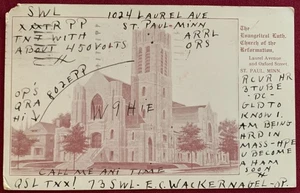 SWL 1024 LAUREL AVE
XXXTR PP ST. PAUL-MINN
TNT WITH ARRL
ABOUT 450 VOLTS ORS
The
Evangelical Luth.
Church of the
Reformation,
Laurel Avenue
and Oxford Street
ST. PAUL, MINN.
RCVR HR
3 TUBE
-DC-
GLD TO
KNOW I
AM BEING
HRD IN
MASS-HPE
U BECOME
A HAM
SOON
OPS
QRA
HI
ROZEPP
W9HIE
CALL ME ANI TIME
QSL TNX 1 73 SWL- E.C. WACKERNAGEL-OP